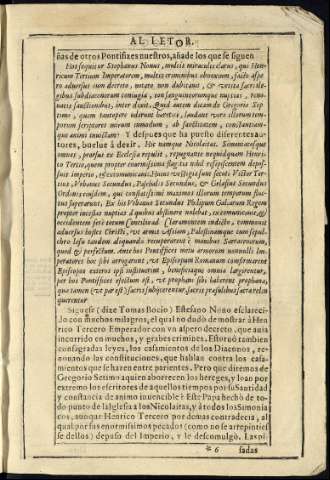 AL LETOR.
ñas de otros Pontifizes nuestros, añade los que se siguen
Hos sequitur Stephanus Nonus, multis miraculis clarus, qui Hen-
ricum Tertium Imperatorem, multis criminibus obnoxium, facto aspe-
ro adversus eum decreto, notare non dubitavit, &
gibus subdiaconorum coniugia, consanguineorumque nuptias, reno-
vatis sanctionibus, inter dixit. Quid autem dicam de Gregorio Sep
timo, quem tantopere oderunt heretici, laudant vero illorum tem-
porum scriptores mirum inmodum, ob sanctitatem, constantiam-
que animi invictam? Y despues que ha puesto diferentes au-
tores, buelue à dezir. Hic namque Nicolaitas, Simoniacosque
omnes, prorsus ex Ecclesia repulit, repugnante nequidquam Henri-
co Tertio, quem propter enormissima
suit imperio, & excommunicavit. Huius vestigia sunt secuti Victor Ter-
tius, Vrbanus Secundus, Paschalis Secundus, & Gelasius Secundus
Ordinis eiusdem, qui constatissimi maximos illorum temporum fluc-
tus superarunt. Ex his Vrbanus Secundus Philipum Galiarum Regem
propter incestas nuptias à quibus desistere nolebat, excommunicavit, &
occidentem ferè totum
adversus hostes Christi, ut armis assistens, Palestinamque cum sepul-
chro Iesu tandem aliquando recuperarent è manibus Sarracenorum,
quod & perfectum. Ante hos Pontifices metu armorum nonnulli Im-
peratores hoc sibi arrogarunt, ut Episcopum Romanum confirmarent
Episcopos ceteros ipsi instituerent, beneficiaque omnia largirentur,
per hos Pontifices effectum est, ut prophana sibi haberent prophani,
que tamen (ut par est) sacris subijcerentur, sacra presulibus
quererentur
Siguese (dize Tomas Bocio) Estefano Nono esclareci-
do con muchos milagros, el qual no dudò de mostrar à Hen
rico Tercero Emperador con vn aspero decreto, que auia
incurrido en muchos, y grabes crimines. Estorvò tambien
consagradas leyes, los casamientos de los Diaconos, re-
nouando las constituciones, que hablan contra los casa-
mientos que se hazen entre parientes. Pero que diremos de
Gregorio Setimo a quien aborrecen los hereges, y loan por
extremo los escritores de aquellos tiempos por su Santidad
y constancia de animo inuencible? Este Papa hechò de to
do punto de la Iglesia a los Nicolaitas, y à todos los Simonia
cos, aunque Henrico Tercero por demas contradecia, al
qual por sus enormisimos pecados (como no se arrepinties
se dellos) depuso del Imperio, y le descomulgò. Las pi-
* 6 sadas